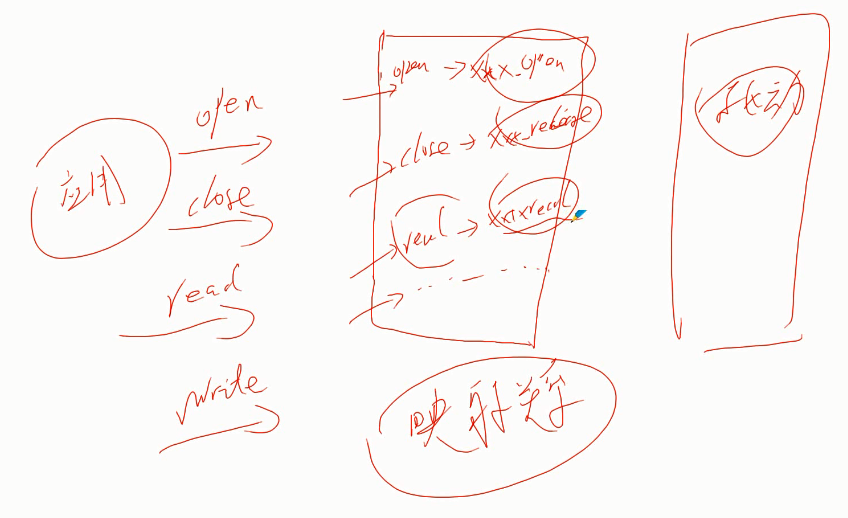 应用
open
close
read
write
open → xxx_open
close → xxx_release
read → xxxread
......
映射关系
驱动